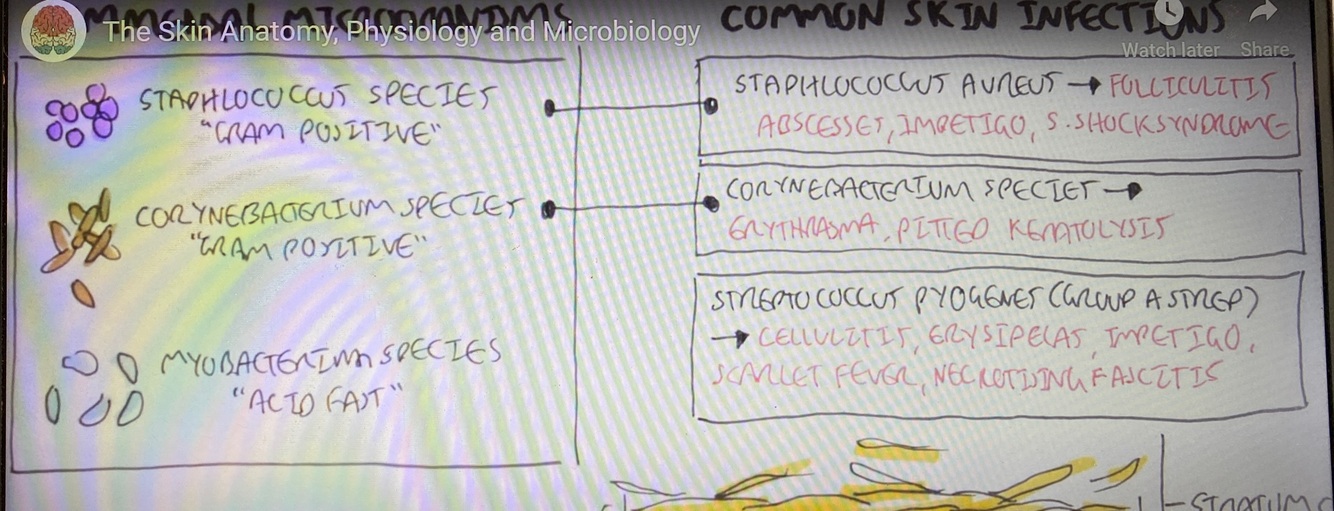 The Skin Anatomy, Physiology and Microbiology
Watch later Share
COMMON SKIN INFECTIONS
STAPHLOCOCCUS SPECIES
"GRAM POSITIVE"
CORYNEBACTERIUM SPECIES
"GRAM POSITIVE"
MYOBACTERIUM SPECIES
"ACID FAST"
STAPHLOCOCCUS AUREUS → FOLLICULITIS
ABSCESSES, IMPETIGO, S. SHOCK SYNDROME
CORYNEBACTERIUM SPECIES →
ERYTHRASMA, PITTED KERATOLYSIS
STREPTOCOCCUS PYOGENES (GROUP A STREP)
→ CELLULITIS, ERYSIPELAS, IMPETIGO,
SCARLET FEVER, NECROTISING FASCITIS
STRATUM C